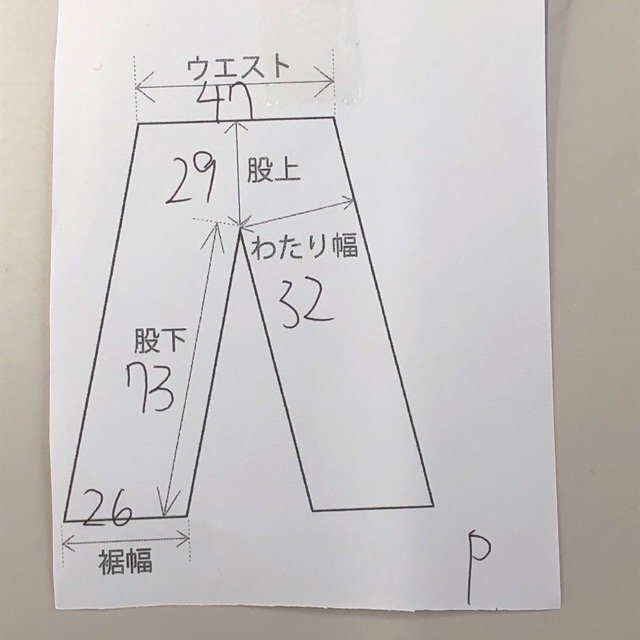 ウエスト
47
29
股上
わたり幅
32
股下
73
26
裾幅
P